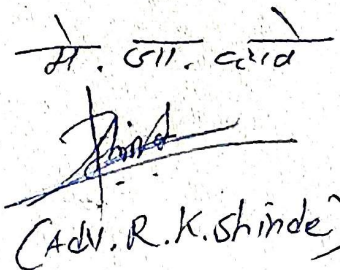 मे. जा. व्हावे
(Adv. R. K. Shinde)